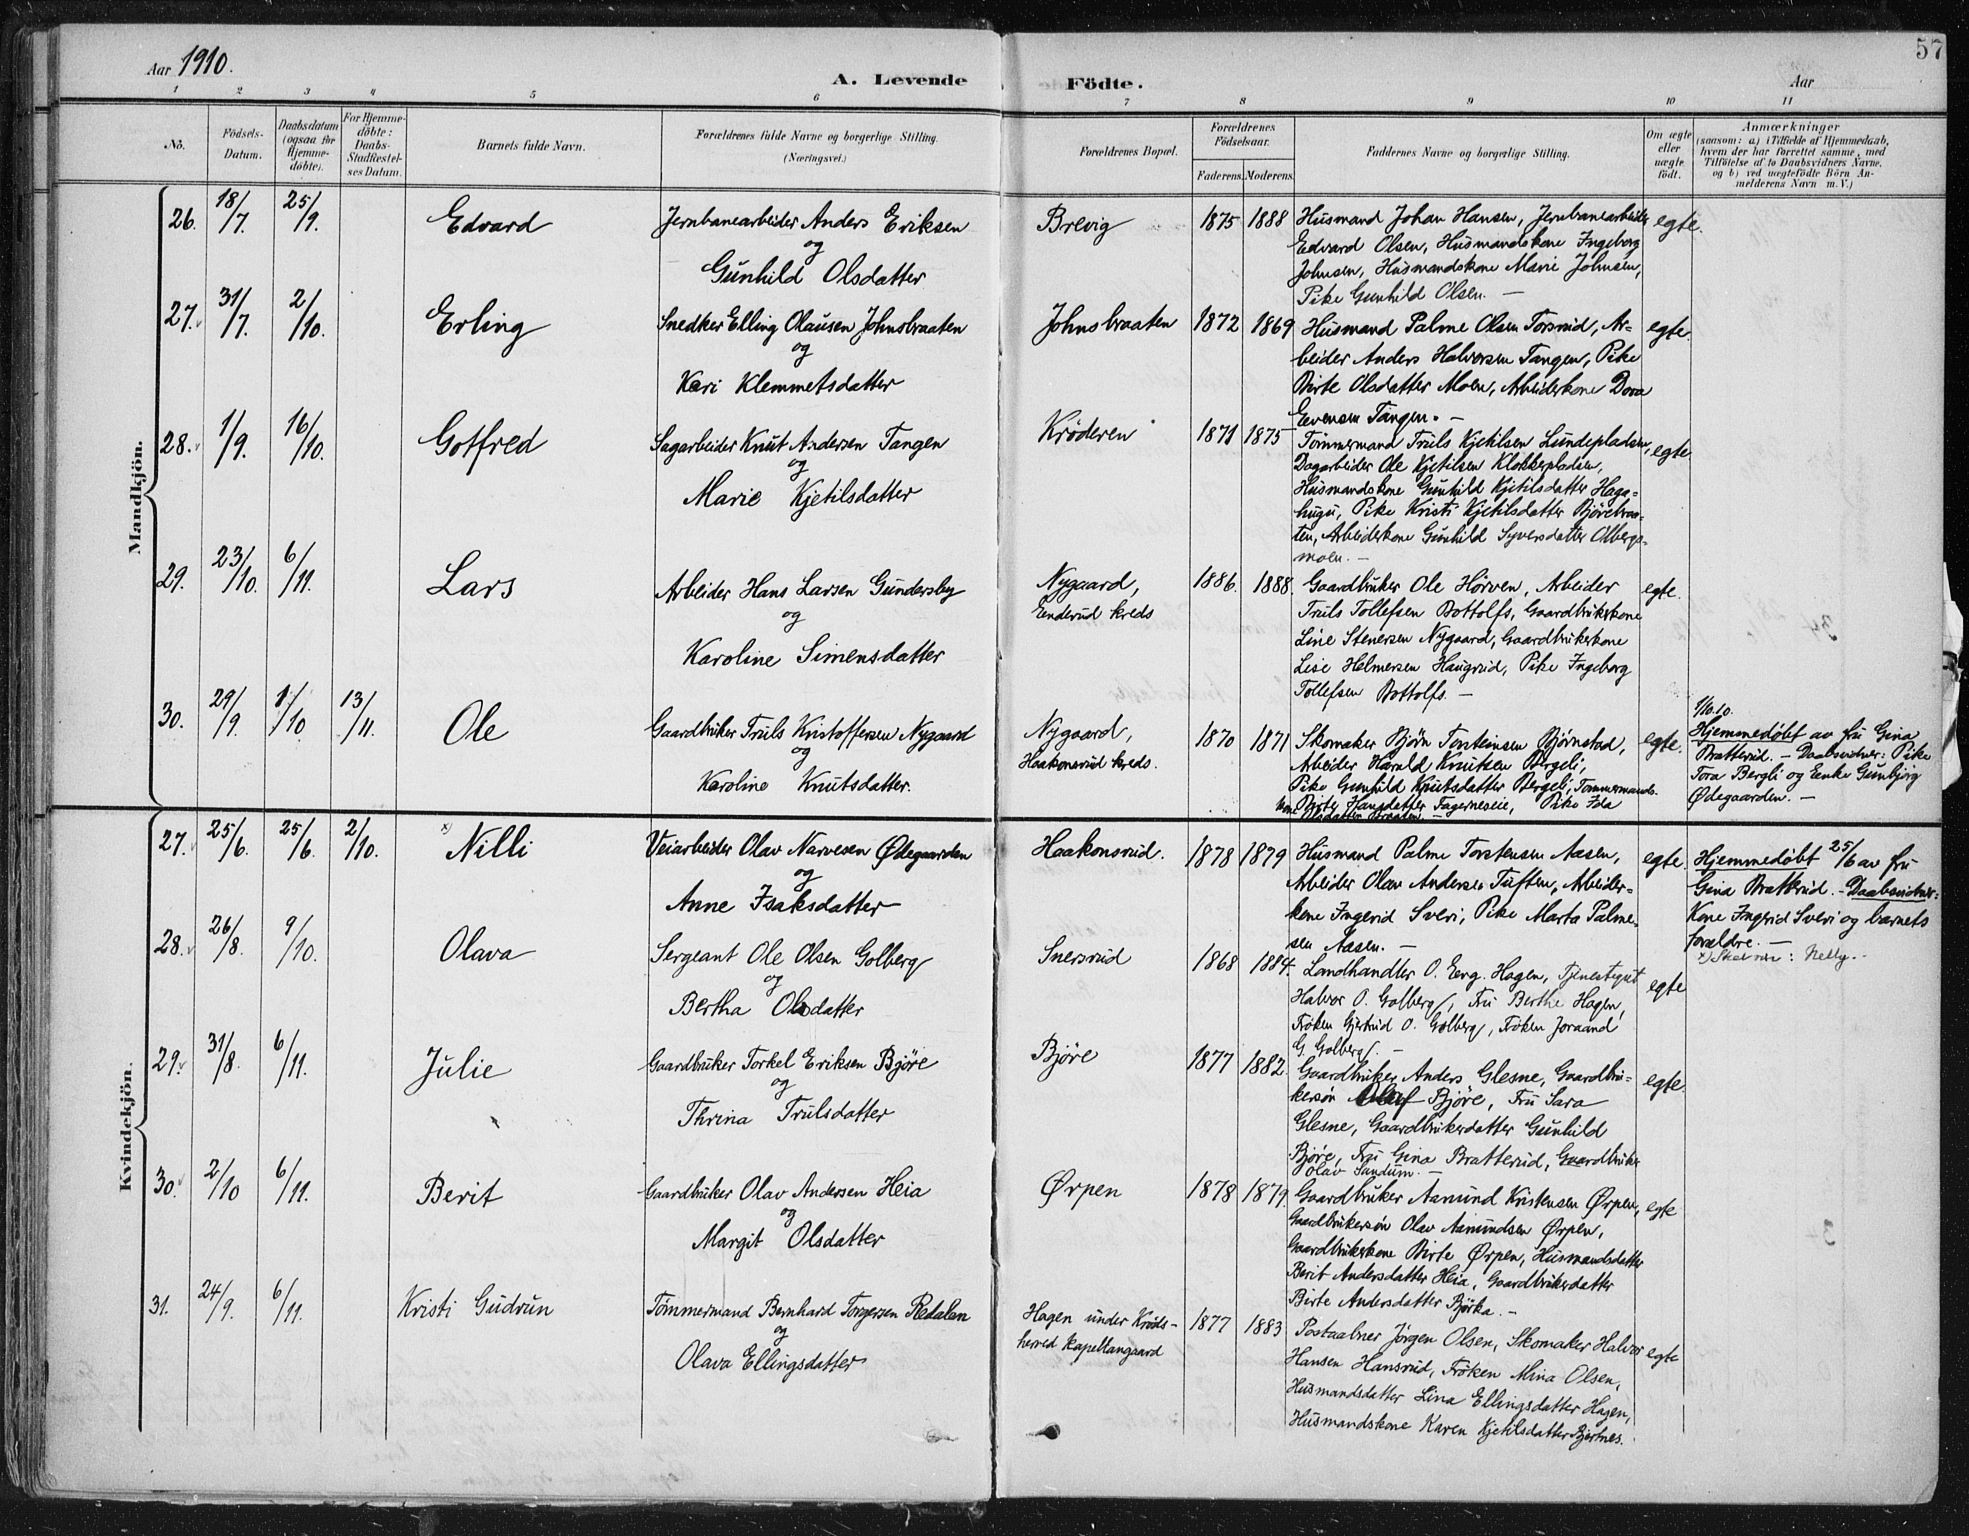 Aar 1910.
A. Levende
Födte.
Aar
57
1 2 3 4 5 6 7 8 9 10 11
No.
Födsels-
Datum.
Daabsdatum
(ogsaa for
Hjemme-
döbte).
For Hjemme-
döbte:
Daabs-
Stadfæstel-
ses Datum.
Barnets fulde Navn.
Forældrenes fulde Navne og borgerlige Stilling.
(Næringsvei.)
Forældrenes Bopæl.
Forældrenes
Födselsaar.
Faderens. Moderens.
Faddernes Navne og borgerlige Stilling.
Om ægte
eller
uægte
födt.
Anmærkninger
(saasom: a) i Tilfælde af Hjemmedaab,
hvem der har forrettet samme, med
Tilföielse af to Daabsvidners Navne,
og b) ved uægtefödte Börn An-
melderens Navn m. V.)
Mandkjön.
26. 18/7. 25/9. Edvard
Jernbanearbeider Anders Eriksen
og
Gunhild Olsdatter
Brevig 1875 1888
Husmand Johan Hansen, Jernbanearbeider
Edvard Olsen, Husmandskone Ingeborg
Johnsen, Husmandskone Marie Johnsen,
Pike Gunhild Olsen. —
egte.
27. 31/7. 2/10. Erling
Snedker Elling Olausen Johnsbraaten
og
Kari Klemmetsdatter
Johnsbraaten 1872 1869
Husmand Palme Olsen Torsrud, Ar-
beider Anders Halvorsen Tangen, Pike
Birte Olsdatter Moen, Arbeiderkone Dora
Evensen Tangen. —
egte.
28. 1/9. 16/10. Gotfred
Sagarbeider Knut Andersen Tangen
og
Marie Kjetilsdatter
Krøderen 1871 1875
Tømmermand Truls Kjetilsen Lundepladsen,
Dagarbeider Ole Kjetilsen Klokkerpladsen,
Husmandskone Gunhild Kjetilsdatter Haga-
hugu, Pike Kristi Kjetilsdatter Bjørebraa-
ten, Arbeiderkone Gunhild Syversdatter Olbergs-
moen. —
egte.
29. 23/10. 6/11. Lars
Arbeider Hans Larsen Gundersby
og
Karoline Simensdatter
Nygaard,
Enderud kreds
1886. 1888.
Gaardbruker Ole Hørven, Arbeider
Truls Tollefsen Bottolfs, Gaardbrukerkone
Line Stenersen Nygaard, Gaardbrukerkone
Lise Helmersen Haugrud, Pike Ingeborg
Tollefsen Bottolfs. —
egte.
30. 29/9. 1/10 13/11. Ole
Gaardbruker Truls Kristoffersen Nygaard
og
Karoline Knutsdatter.
Nygaard,
Haakonsrud kreds.
1870 1871
Skomaker Bjørn Torsteinsen Bjørnstad,
Arbeider Harald Knutsen Bergeli,
Pike Gunhild Knutsdatter Bergeli, Tømmermands-
kone Birte Hansdatter Fagerneseie, Pike Ida
Olsdatter Braaten. —
egte.
1/10.10.
Hjemmedøbt av fru Gina
Bratterud. — Daabsvidner: Pike
Tora Bergli og Enke Gunbjørg
Ødegaarden. —
Kvindekjön.
27. 25/6. 25/6. 2/10. x) Nilli
Veiarbeider Olav Narvesen Ødegaarden
og
Anne Isaksdatter
Haakonsrud. 1878 1879
Husmand Palme Torstensen Aasen,
Arbeider Olav Andersen Tuften, Arbeider-
kone Ingerid Sveri, Pike Marta Palme-
sen Aasen. —
egte.
Hjemmedøbt 25/6 av fru
Gina Bratterud. — Daabsvidner:
Kone Ingerid Sveri og barnets
forældre. —
x) Skal være: Nelly.
28. 26/8. 9/10. Olava
Sergeant Ole Olsen Golberg
og
Bertha Olsdatter
Snersrud 1868 1884.
Landhandler O. Eng. Hagen, Tjenestegut
Halvor O. Golberg, Fru Berthe Hagen,
Frøken Gjertrud O. Golberg, Frøken Joraand
G. Golberg. —
egte
29. 31/8. 6/11. Julie
Gaardbruker Torkel Eriksen Bjøre
og
Thrina Trulsdatter
Bjøre 1877 1882.
Gaardbruker Anders Glesne, Gaardbru-
kersøn Olaf Bjøre, Fru Sara
Glesne, Gaardbrukerdatter Gunhild
Bjøre, Fru Gina Bratterud, Gaardbruker
Olav Sandum. —
egte.
30. 2/10 6/11. Berit
Gaardbruker Olav Andersen Heia
og
Margit Olsdatter
Ørpen 1878 1879.
Gaardbruker Aamund Kristensen Ørpen,
Gaardbrukersøn Olav Aamundsen Ørpen,
Gaardbrukerkone Birte Ørpen, Husmandsdatter
Berit Andersdatter Heia, Gaardbrukerdatter
Birte Andersdatter Bjørka. —
egte
31. 24/9. 6/11. Kristi Gudrun
Tømmermand Bernhard Torgersen Redalen
og
Olava Ellingsdatter
Hagen under Krøds-
herred Kapellangaard
1877 1883
Postaabner Jørgen Olsen, Skomaker Halvor
Hansen Hansrud, Frøken Mina Olsen,
Husmandsdatter Lina Ellingsdatter Hagen,
Husmandskone Karen Kjetilsdatter Bjertnes.
egte